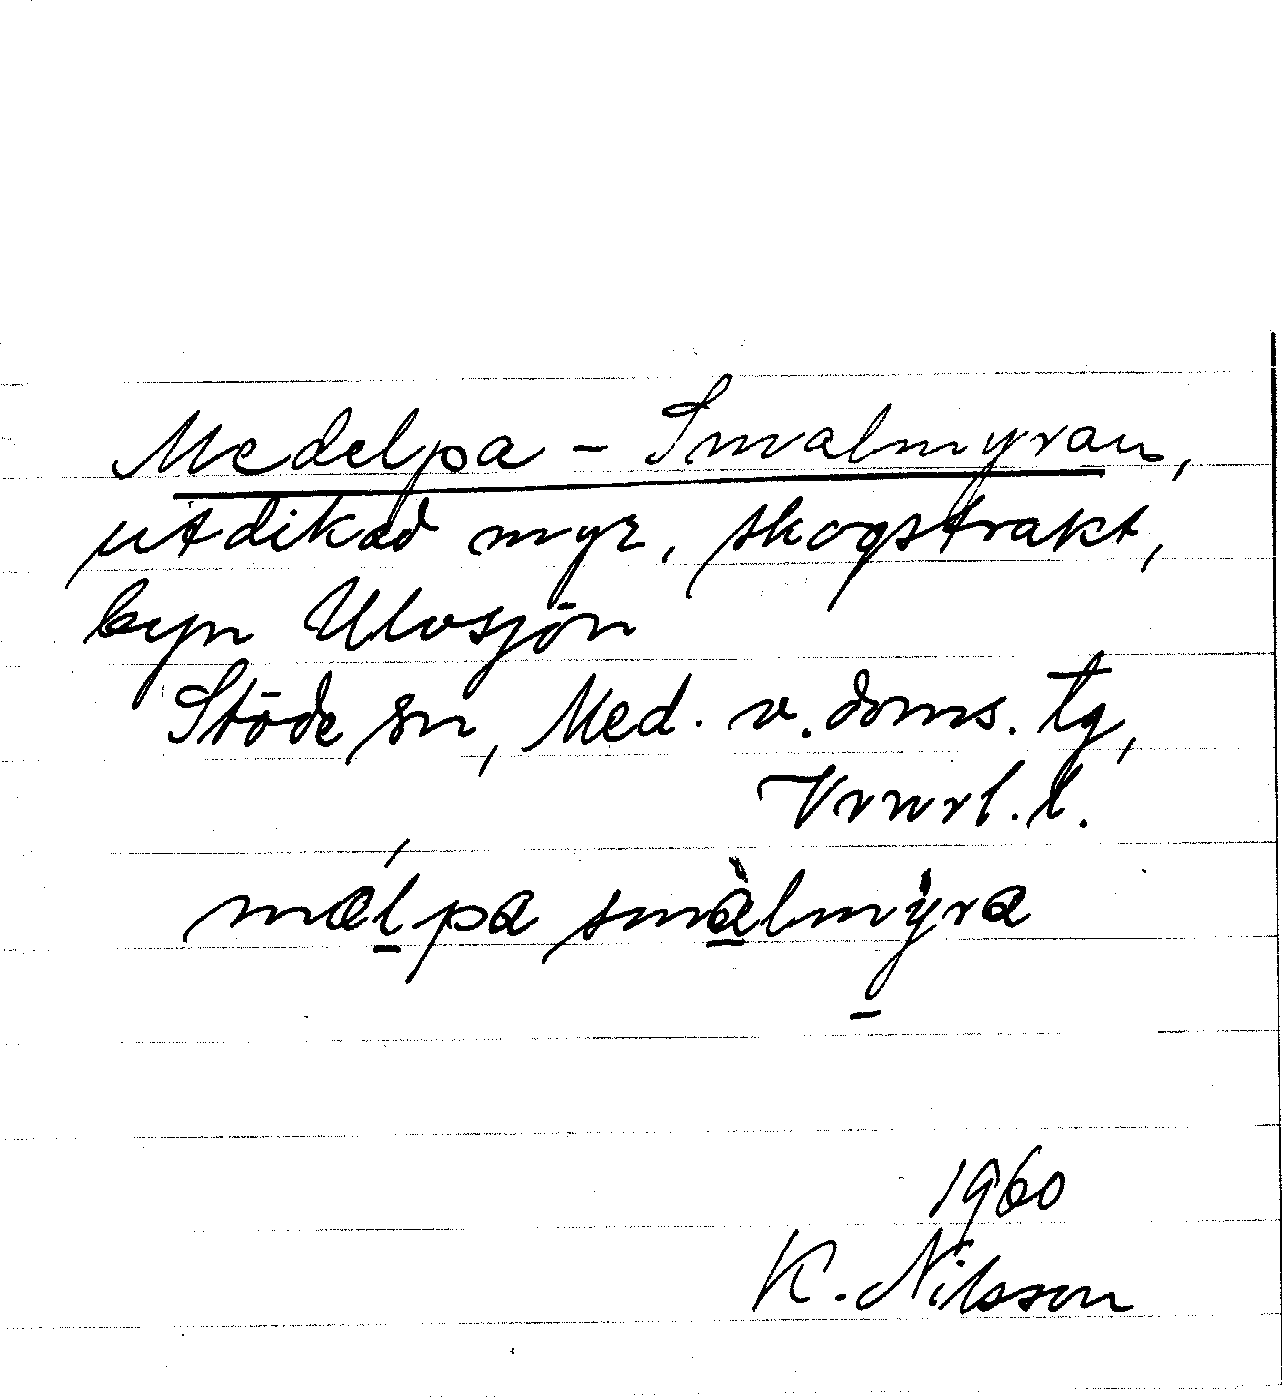 Medelpa - Smalmyran,
utdikad myr, skogstrakt,
byn Ulvsjön
Stöde sn, Med. v. doms. tg,
Vrnrl. l.
mæ̀l̲pa smà̲lmỳ̲ra
1960
K. Nilsson